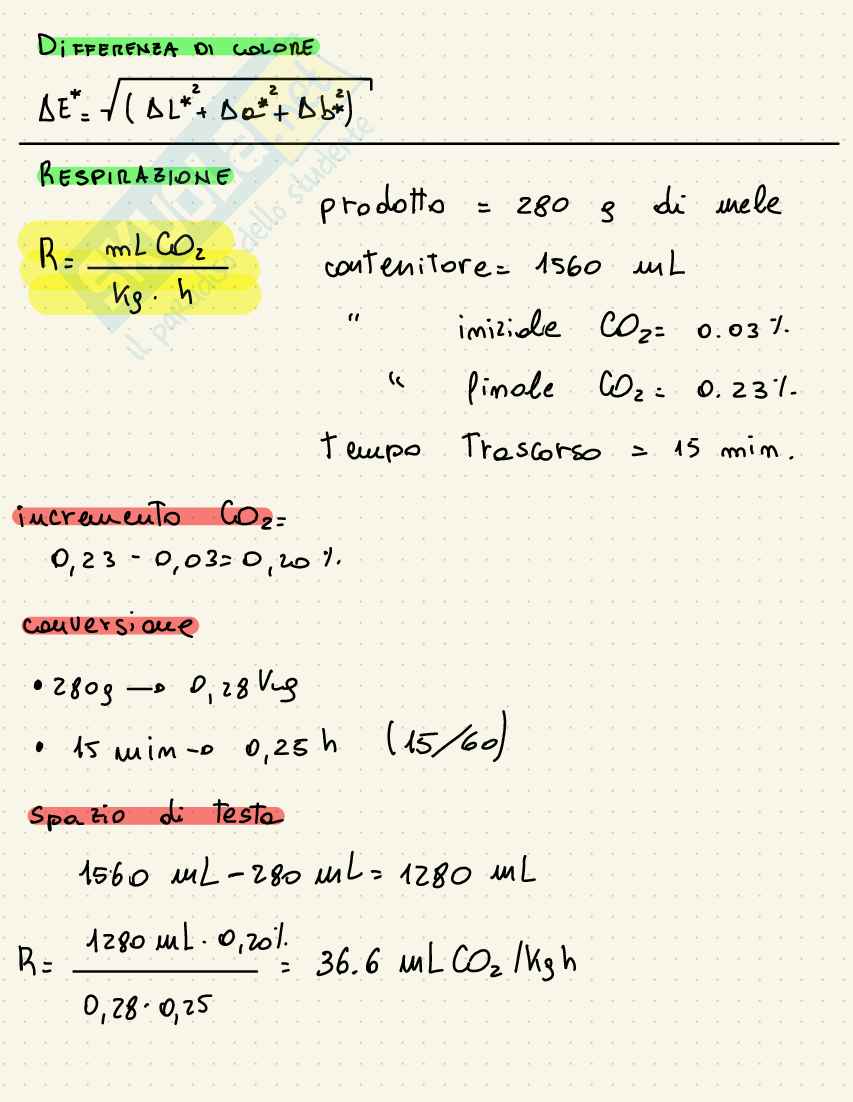 DIFFERENZA DI COLORE
ΔE*= √(ΔL*²+ Δa*²+ Δb*²)
RESPIRAZIONE
R= mL CO₂ / Kg · h
prodotto = 280 g di mele
contenitore= 1560 mL
" iniziale CO₂= 0.03 %
" finale CO₂= 0.23%
tempo Trascorso = 15 min.
incremento CO₂=
0,23 - 0,03= 0,20 %
conversione
• 280g → 0,28 Kg
• 15 min → 0,25 h (15/60)
spazio di testa
1560 mL - 280 mL = 1280 mL
R= 1280 mL · 0,20% / 0,28 · 0,25 = 36.6 mL CO₂ /Kg h
dello studente